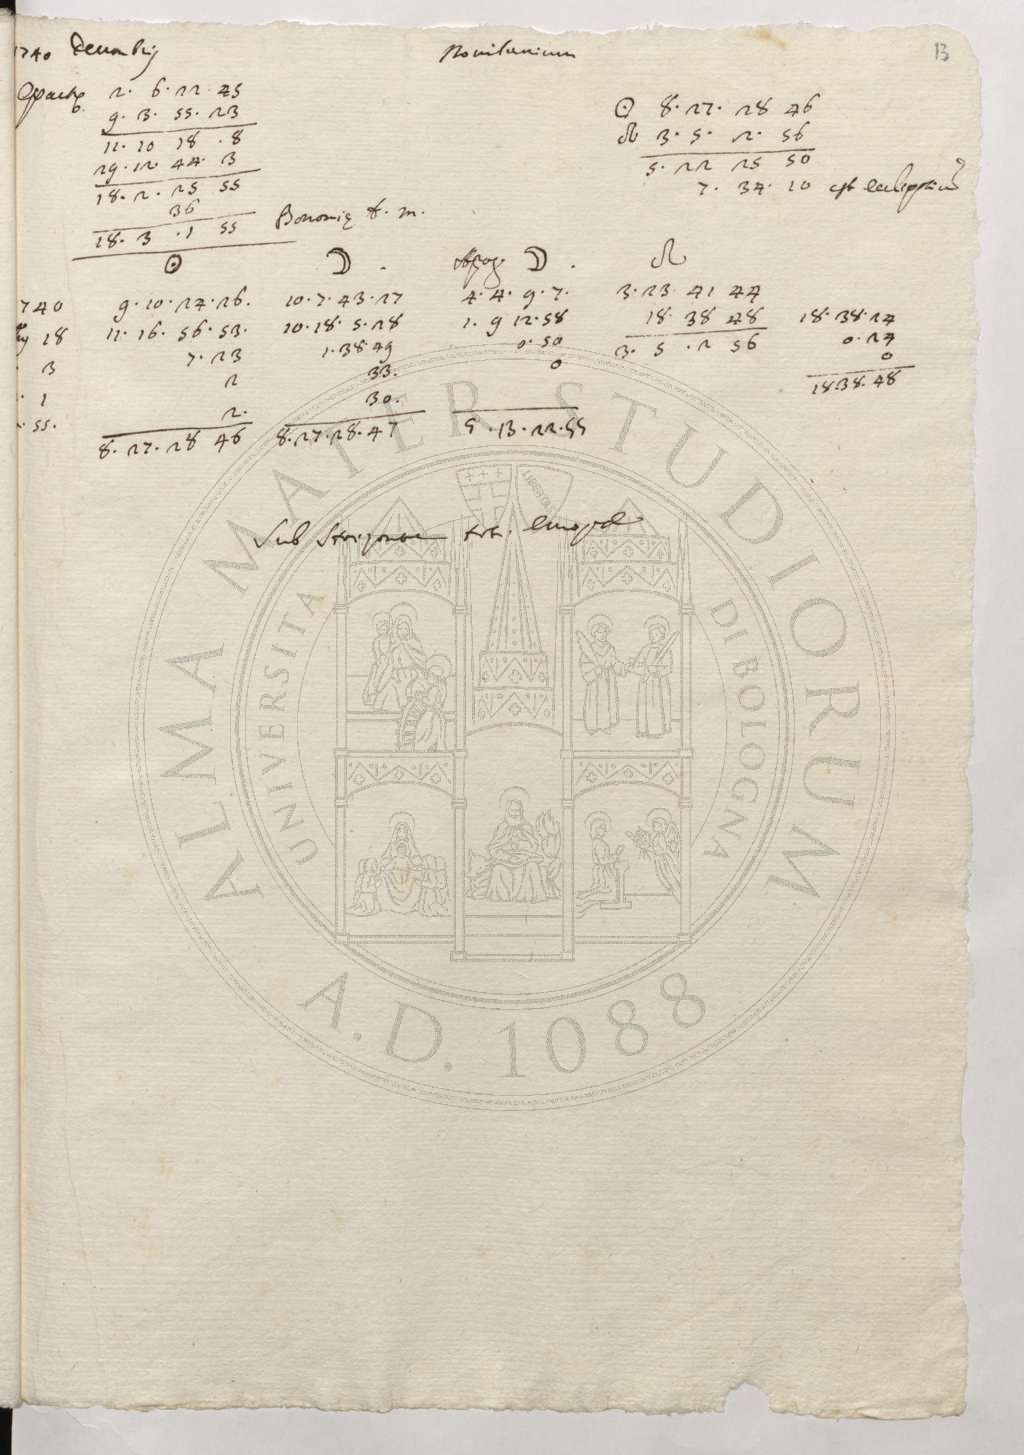 1740 Decembris Novilunium 13
Epactę 2. 6. 22 45
9. 3. 55. 23
11. 10 18 . 8
29. 12. 44. 3
18. 2. 25 55
36
18. 3 . 1 55 Bononię t. m.
☉ 8. 27. 28 46
☊ 3. 5. 2. 56
5. 22 25 50
7. 34. 10 est ecliptica
☉ ☽ . Apog. ☽ . ☊
740 9. 10. 24. 26. 10. 7. 43. 27 4. 4. 9. 7. 3. 23 41 44
18 11. 16. 56. 53. 10. 18. 5. 28 1. 9 12. 58 18. 38 48 18. 38. 24
3 7. 23 1. 38. 49 0. 50 3. 5 . 2 56 0. 24
. 1 2 33. 0 0
. 55. 2. 30. 18 38. 48
8. 27. 28 46 8. 27. 28. 47 5. 13. 22. 55
Sub
ALMA MATER STUDIORUM
UNIVERSITA DI BOLOGNA
LIBERTAS
A.D. 1088